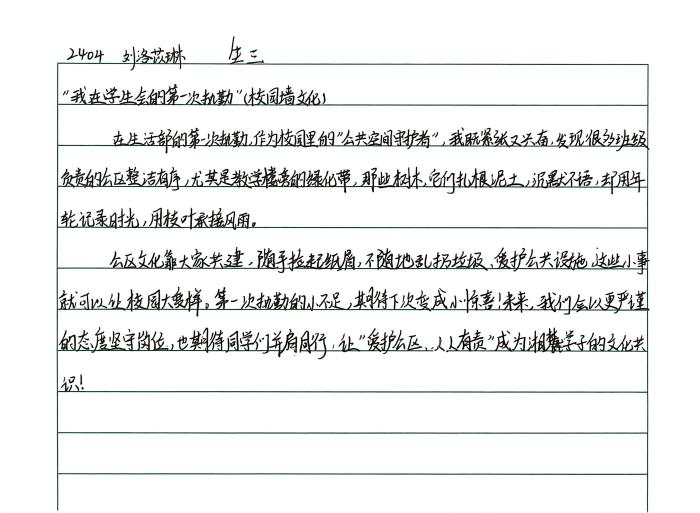 2404 刘洛莎琳 生三
“我在学生会的第一次执勤”(校园墙文化)
在生活部的第一次执勤,作为校园里的“公共空间守护者”,我既紧张又兴奋,发现很多班级
负责的公区整洁有序,尤其是教学楼旁的绿化带,那些树木,它们扎根泥土,沉默不语,却用年
轮记录时光,用枝叶承接风雨。
公区文化靠大家共建,随手捡起纸屑,不随地乱扔垃圾、爱护公共设施,这些小事
就可以让校园大变样。第一次执勤的小不足,期待下次变成小惊喜!未来,我们会以更严谨
的态度坚守岗位,也期待同学们并肩同行,让“爱护公区、人人有责”成为湘麓学子的文化共
识!